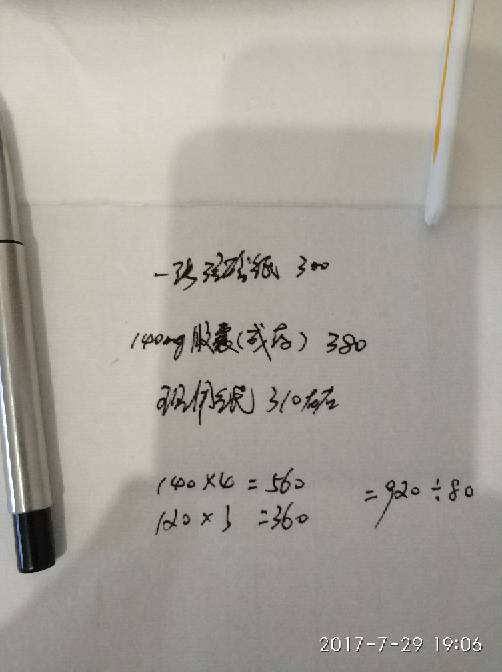 一张 纸 300
140mg胶囊(或存) 380
纸 310左右
140×4=560
120×3=360
=920÷80
2017-7-29 19:06